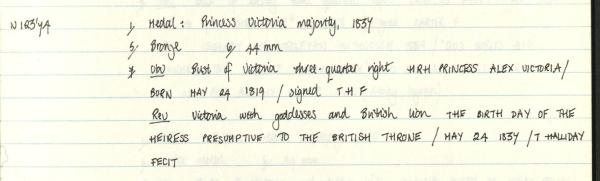 N 183'44 1/ Medal: Princess Victoria majority, 1837
5/ Bronze 6/ 44 mm
7/ Obv Bust of Victoria three-quarter right HRH PRINCESS ALEX VICTORIA/
BORN MAY 24 1819 / signed T H F
Rev Victoria with goddesses and British lion THE BIRTH DAY OF THE
HEIRESS PRESUMPTIVE TO THE BRITISH THRONE / MAY 24 1837 / T HALLIDAY
FECIT